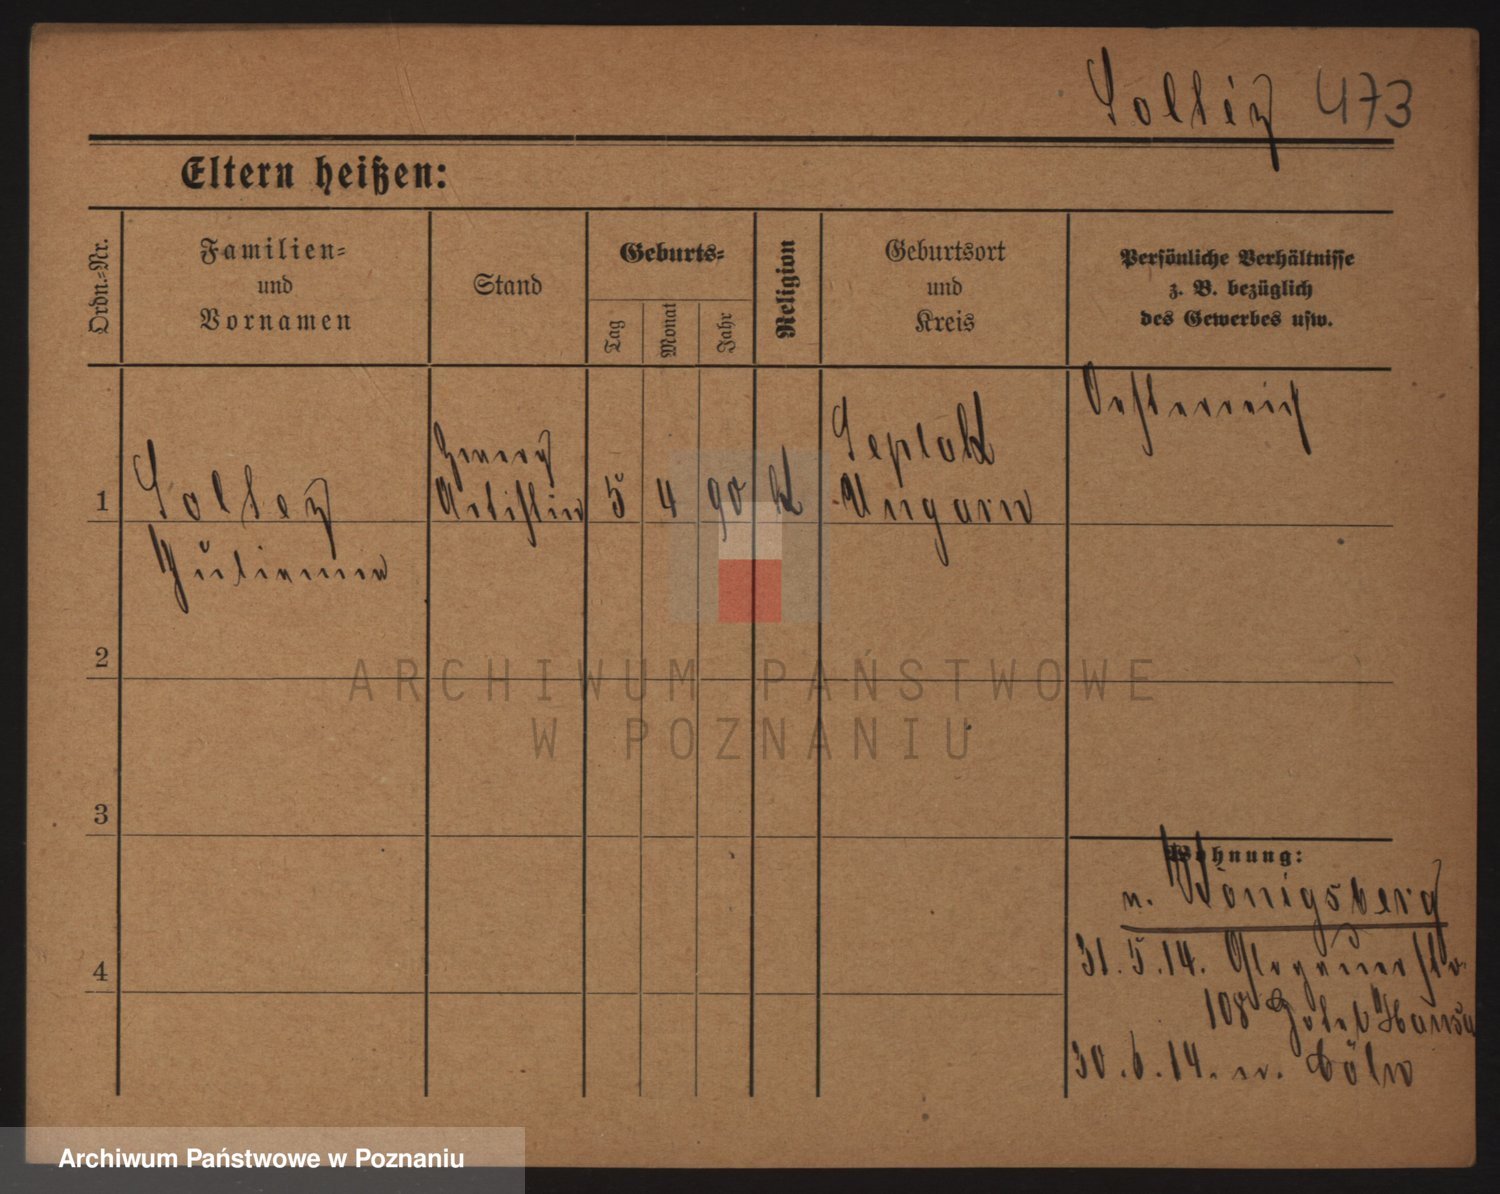 Soltéz 473
Eltern heißen:
Ordn.-Nr.
Familien-
und
Vornamen
Stand
Geburts-
Tag
Monat
Jahr
Religion
Geburtsort
und
Kreis
Persönliche Verhältnisse
z. B. bezüglich
des Gewerbes usw.
1
Soltez
Julianna
Artistin
5
4
90
k
Teplak
Ungarn
Oesterreich
2
3
4
ARCHIWUM PAŃSTWOWE
W POZNANIU
Wohnung:
n. Königsberg
31.5.14. Glogauerstr.
108 Hotel Hansa
30.6.14. n. Cöln
Archiwum Państwowe w Poznaniu